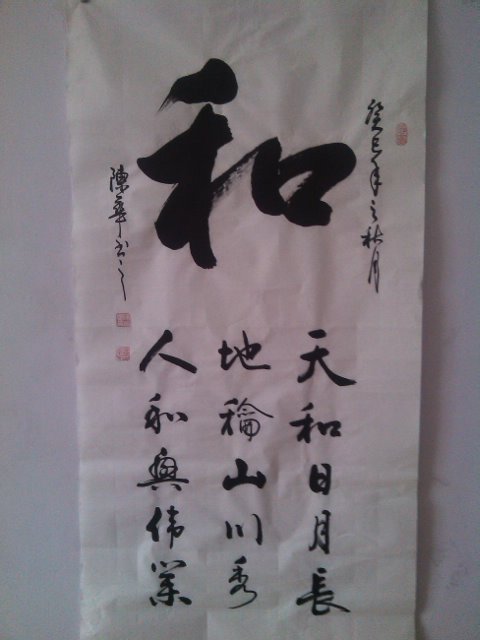 癸巳年之秋月
和
天和日月長
地龢山川秀
人和興伟業
陳華书之